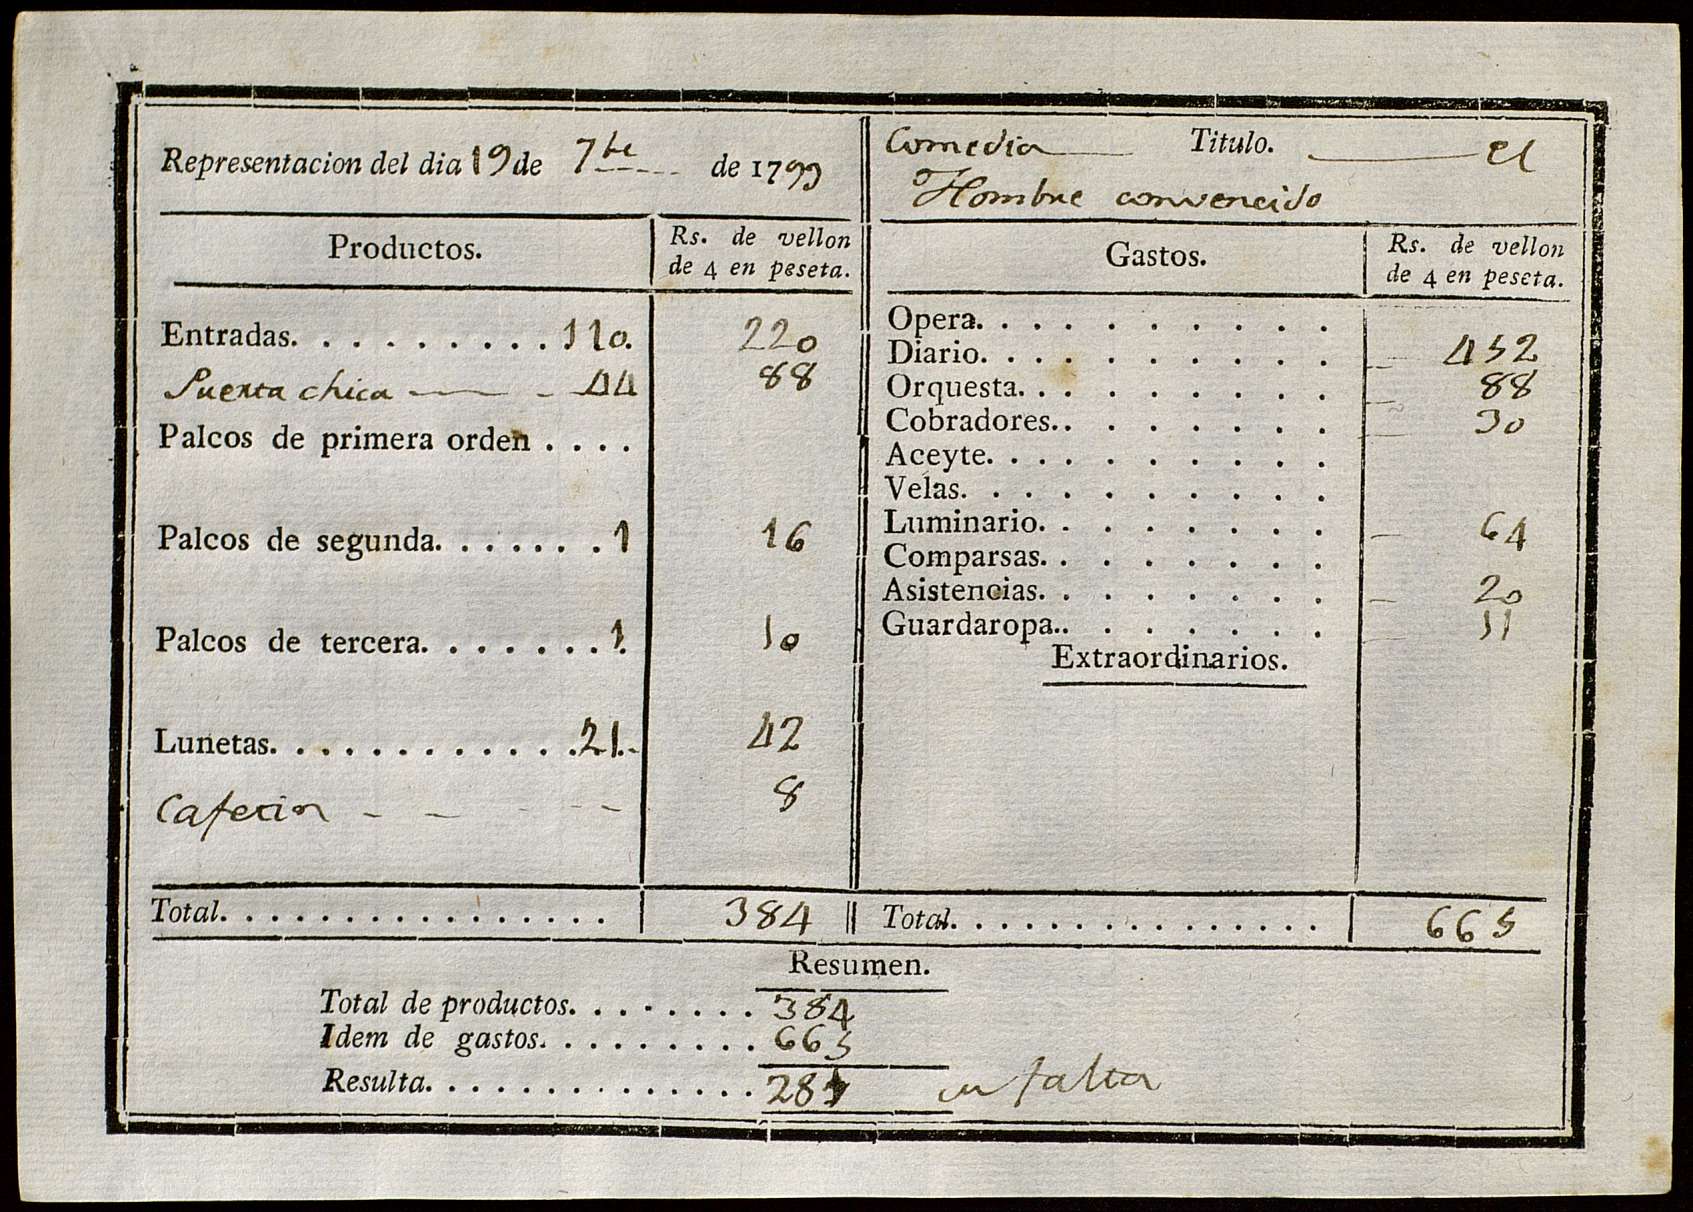 Representacion del dia 19 de 7bre de 1799
Productos.
Rs. de vellon
de 4 en peseta.
Entradas. . . . . . . . . 110. 220
Puerta chica 44 88
Palcos de primera orden . . . .
Palcos de segunda. . . . . . . 1 16
Palcos de tercera. . . . . . . 1. 10
Lunetas. . . . . . . . . . . . 21.- 42
Caferia - - - - - 8
Total. . . . . . . . . . . . . . . . . 384
Comedia Titulo. el
Hombre convencido
Gastos.
Rs. de vellon
de 4 en peseta.
Opera. . . . . . . . . .
Diario. . . . . . . . . . 452
Orquesta. . . . . . . . . 88
Cobradores.. . . . . . . . 30
Aceyte. . . . . . . . . .
Velas. . . . . . . . . .
Luminario. . . . . . . . 64
Comparsas. . . . . . . .
Asistencias. . . . . . . . 20
Guardaropa.. . . . . . . 11
Extraordinarios.
Total. . . . . . . . . . . . . . . . 665
Resumen.
Total de productos. . . . . . . . 384
Idem de gastos. . . . . . . . . 665
Resulta. . . . . . . . . . . . . . 281 en falta